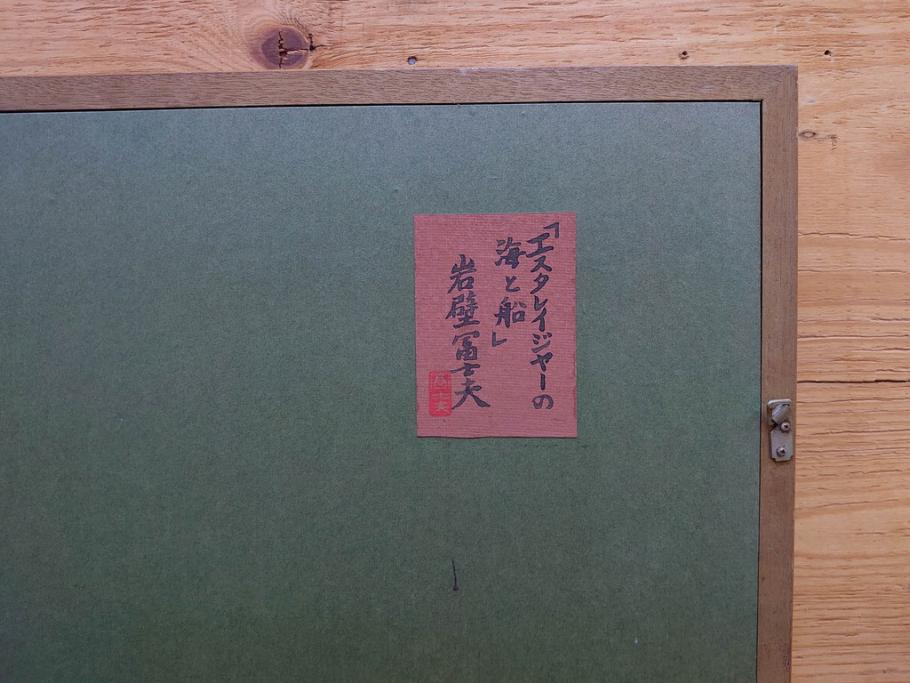 「エスタレイジャーの
海と船」
岩壁冨士夫
冨士夫